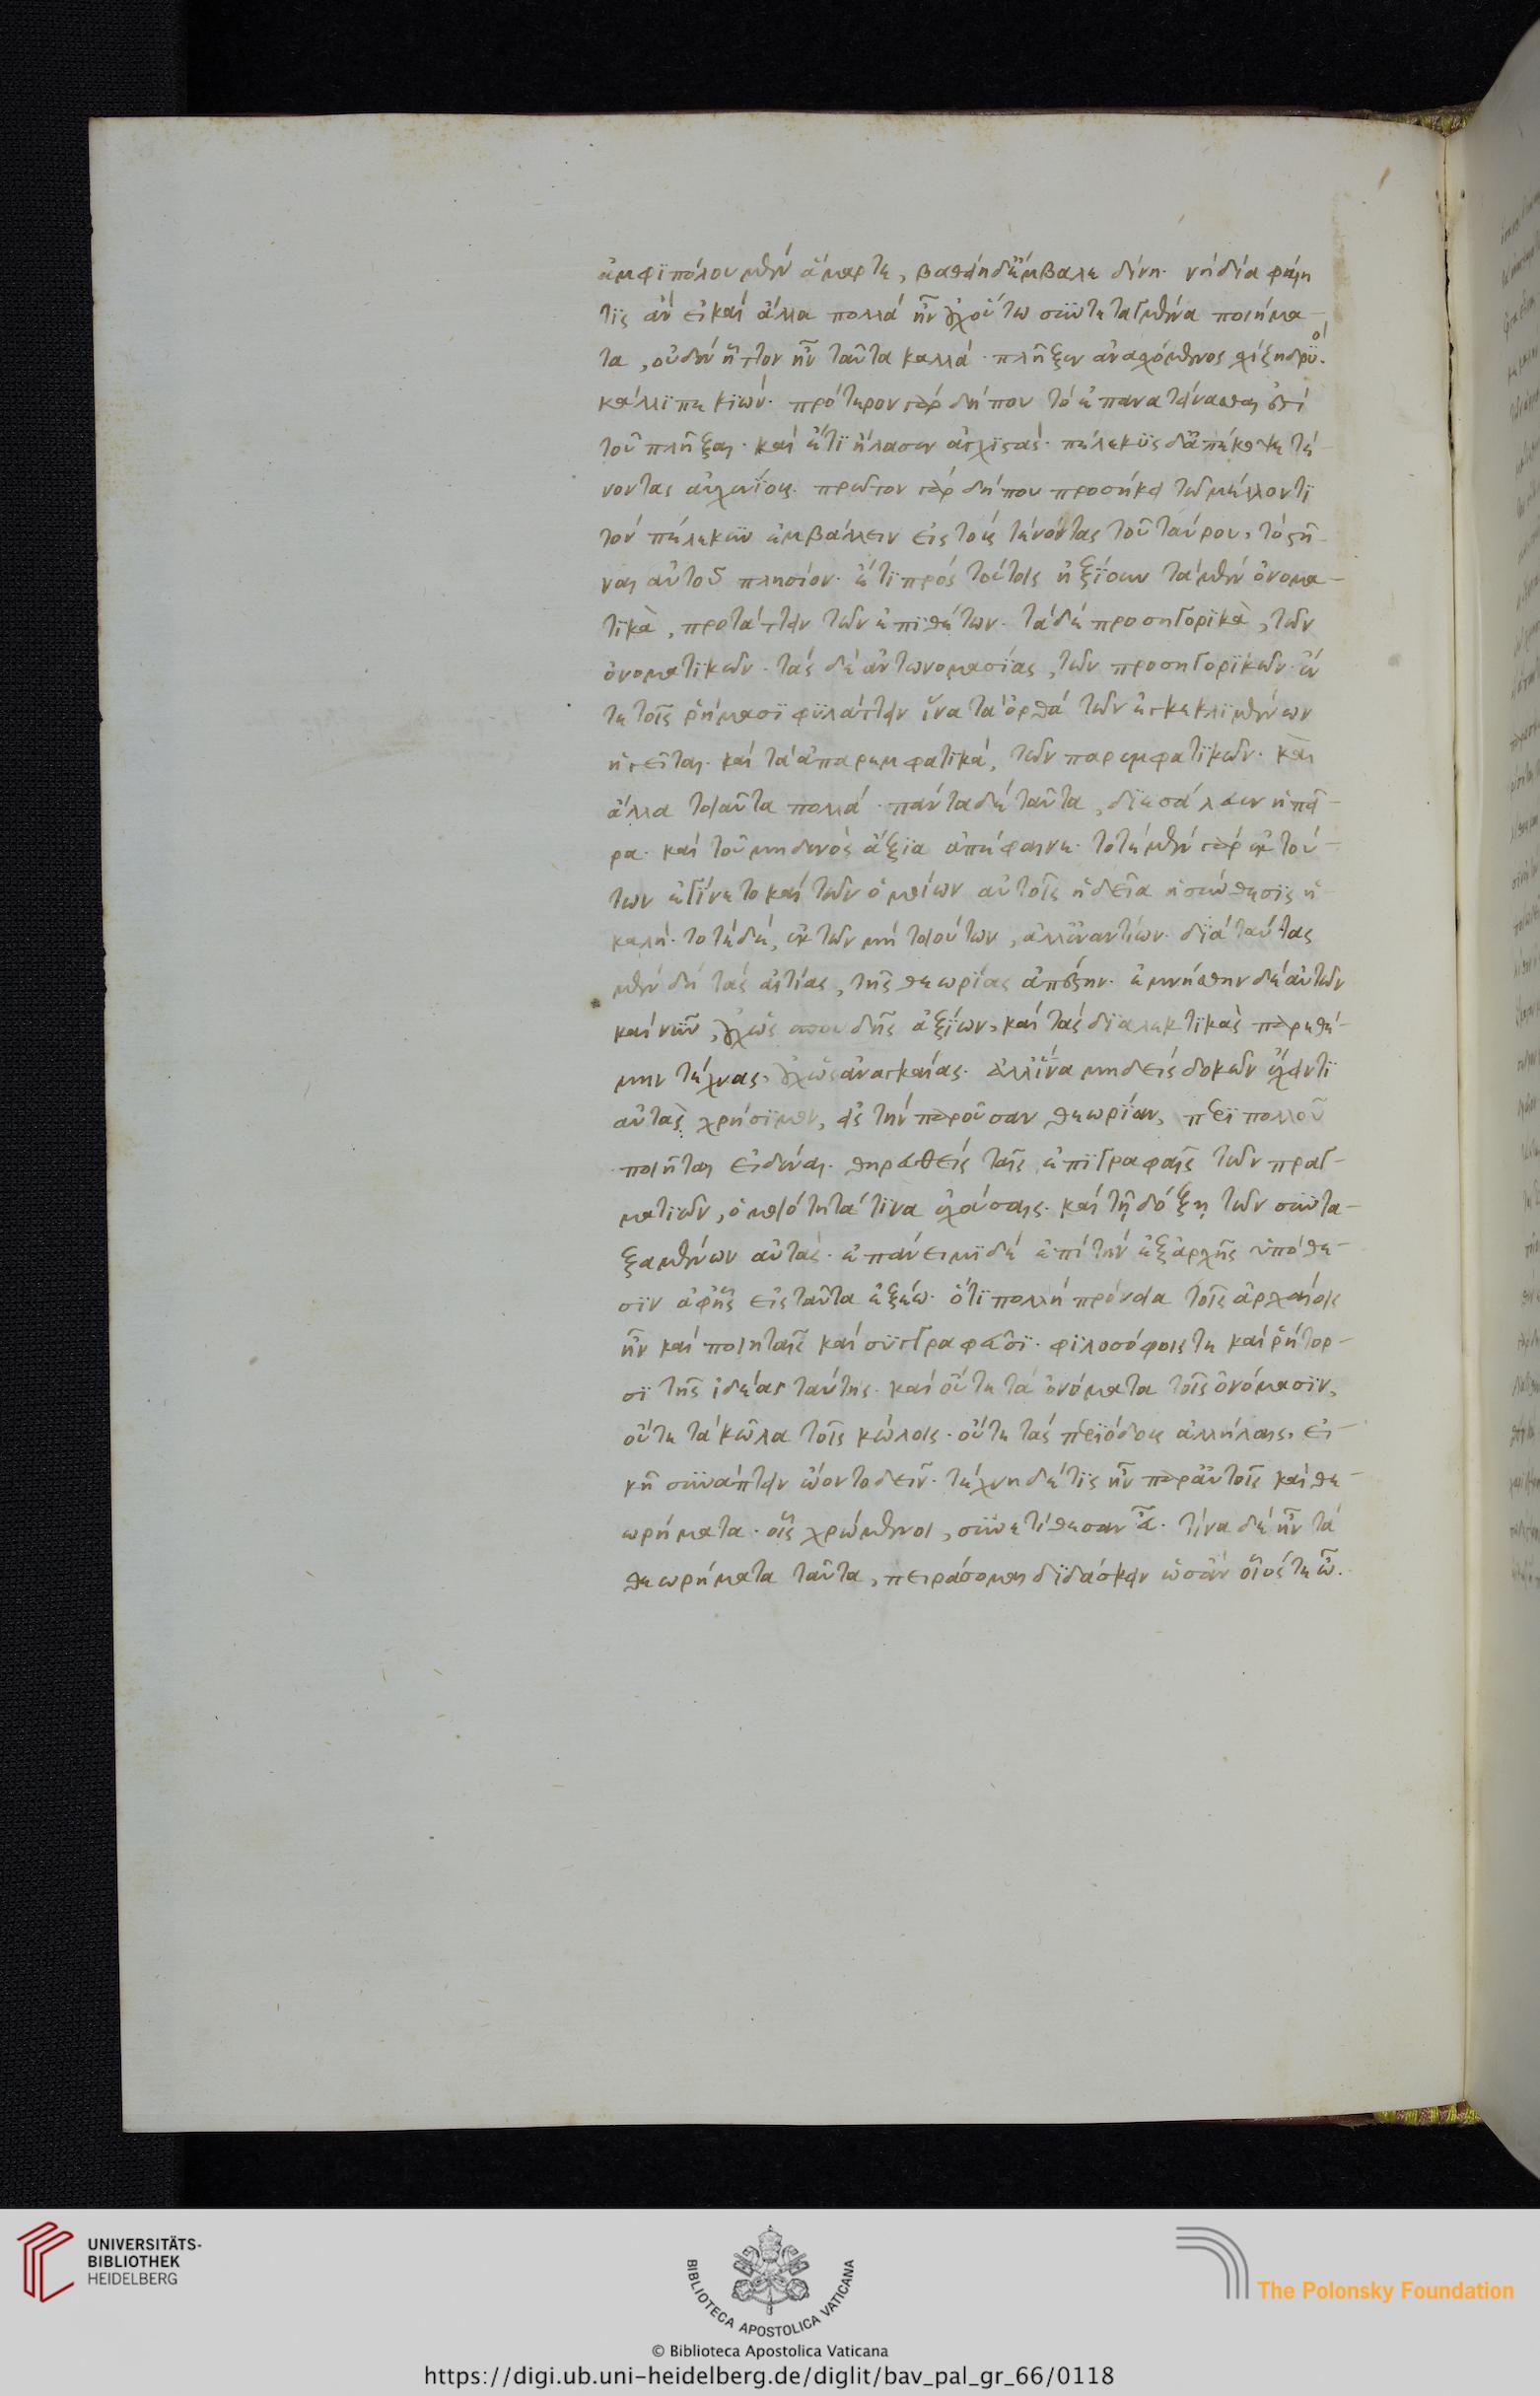 ἀμφιπόλου μὲν ἅμαρτε, βαθείη δ' ἔμβαλε δίνη. νὴ δία φαίη
τις ἂν εἰ καὶ ἄλλα πολλὰ ἦν ἐχ οὕτω συντεταγμένα ποιήμα-
τα, οὐδὲν ἧττον ἦν ταῦτα καλλά. πλῆξεν ἀνασχόμενος
κάλλιπε κιών. πρότερον γὰρ δήπου τὸ ἐπανατείνασθαι ἐστὶ
τοῦ πλῆξαι. καὶ ἔτι ἤλασεν ἄγχι στάς. πέλεκυς δ' ἀπέκοψε τέ-
νοντας αὐχενίους. πρῶτον γὰρ δήπου προσήκει τῶ μέλλοντι
τὸν πέλεκυν ἐμβάλλειν εἰς τοὺς τένοντας τοῦ ταύρου, τὸ στῆ-
ναι αὐτοῦ πλησίον. ἔτι πρὸς τούτοις ἠξίουν τὰ μὲν ὀνομα-
τικὰ, προτάττειν τῶν ἐπιθέτων. τὰ δὲ προσηγορικὰ, τῶν
ὀνοματικῶν. τὰς δὲ ἀντωνομασίας, τῶν προσηγορικῶν. ἔν
τε τοῖς ῥήμασι φυλάττειν ἵνα τὰ ὀρθὰ τῶν ἐγκεκλιμένων
ἡγεῖται. καὶ τὰ ἀπαρεμφατικά, τῶν παρεμφατικῶν. καὶ
ἄλλα τοιαῦτα πολλά. πάντα δὲ ταῦτα, διεσάλευεν ἡ πεῖ-
ρα. καὶ τοῦ μηδενὸς ἄξια ἀπέφαινε. τοτὲ μὲν γὰρ ἐκ τού-
των ἐγίνετο καὶ τῶν ὁμοίων αὐτοῖς ἡδεῖα ἡ σύνθεσις ἢ
καλή. τοτὲ δέ, ἐκ τῶν μὴ τοιούτων, ἀλλ' ἐναντίων. διὰ ταύτας
μὲν δὴ τὰς αἰτίας, τῆς θεωρίας ἀπέστην. ἐμνήσθην δὲ αὐτῶν
καὶ νῦν, ἐχ ὡς σπουδῆς ἀξίων, καὶ τὰς διαλεκτικὰς παρεθέ-
μην τέχνας, ἐχ ὡς ἀναγκαίας. ἀλλ' ἵνα μηδεὶς δοκῶν ἔχειν τι
αὐτὰς χρήσιμον, εἰς τὴν παροῦσαν θεωρίαν, περὶ πολλοῦ
ποιῆται εἰδέναι. θηρευθεὶς ταῖς ἐπιγραφαῖς τῶν πραγ-
ματιῶν, ὁμοιότητά τινα ἐχούσαις. καὶ τῇ δόξῃ τῶν συντα-
ξαμένων αὐτάς. ἐπάνειμι δὲ ἐπὶ τὴν ἐξ ἀρχῆς ὑπόθε-
σιν ἀφ' ἧς εἰς ταῦτα ἐξέω. ὅτι πολλὴ πρόνοια τοῖς ἀρχαίοις
ἦν καὶ ποιηταῖς καὶ συγγραφεῦσι. φιλοσόφοις τε καὶ ῥήτορ-
σι τῆς ἰδέας ταύτης. καὶ οὔτε τὰ ὀνόματα τοῖς ὀνόμασιν,
οὔτε τὰ κῶλα τοῖς κώλοις. οὔτε τὰς περιόδους ἀλλήλαις, εἰ-
κῆ συνάπτειν ᾤοντο δεῖν. τέχνη δέ τις ἦν παρ' αὐτοῖς καὶ θε-
ωρήματα. οἷς χρώμενοι, συνετίθεσαν εὖ. τίνα δὲ ἦν τὰ
θεωρήματα ταῦτα, πειράσομαι διδάσκειν ὡς ἂν οἷός τε ὦ.
UNIVERSITÄTS-
BIBLIOTHEK
HEIDELBERG
BIBLIOTECA APOSTOLICA VATICANA
© Biblioteca Apostolica Vaticana
The Polonsky Foundation
https://digi.ub.uni-heidelberg.de/diglit/bav_pal_gr_66/0118